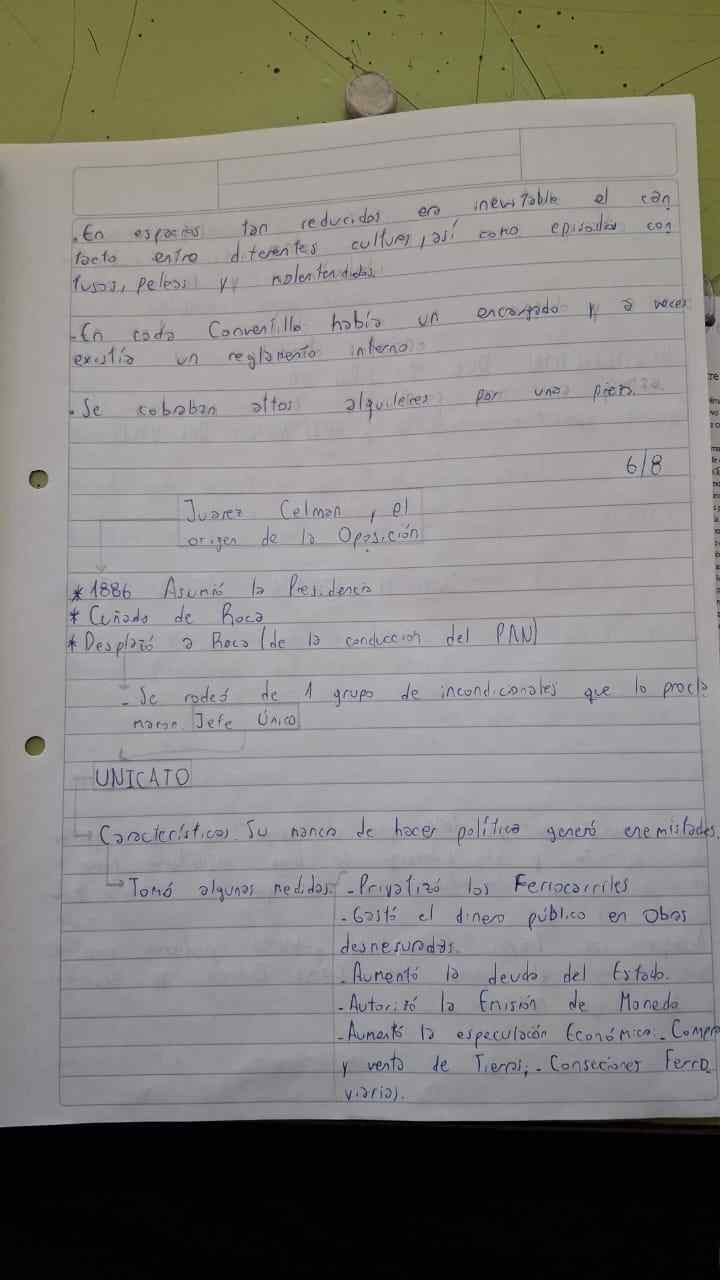 . En espacios tan reducidos era inevitable el con
tacto entre diferentes culturas, así como episodios con
fusos, peleas y malentendidos.
- En cada Conventillo había un encargado y a veces
existía un reglamento interno
. Se cobraban altos alquileres por una pieza.
6/8
Juarez Celman, el
origen de la Oposición
* 1886 Asumió la Presidencia
* Cuñado de Roca
* Desplazó a Roca (de la conduccion del PAN)
- Se rodeó de 1 grupo de incondicionales que lo procla
maron Jefe Único
UNICATO
Características. Su manera de hacer política generó enemistades.
Tomó algunas medidas. - Privatizó los Ferrocarriles
- Gastó el dinero público en Obras
desmesuradas.
- Aumentó la deuda del Estado.
- Autorizó la Emisión de Moneda
- Aumentó la especulación Económica. - Compra
y venta de Tierras, - Conseciones Ferro
viarias.